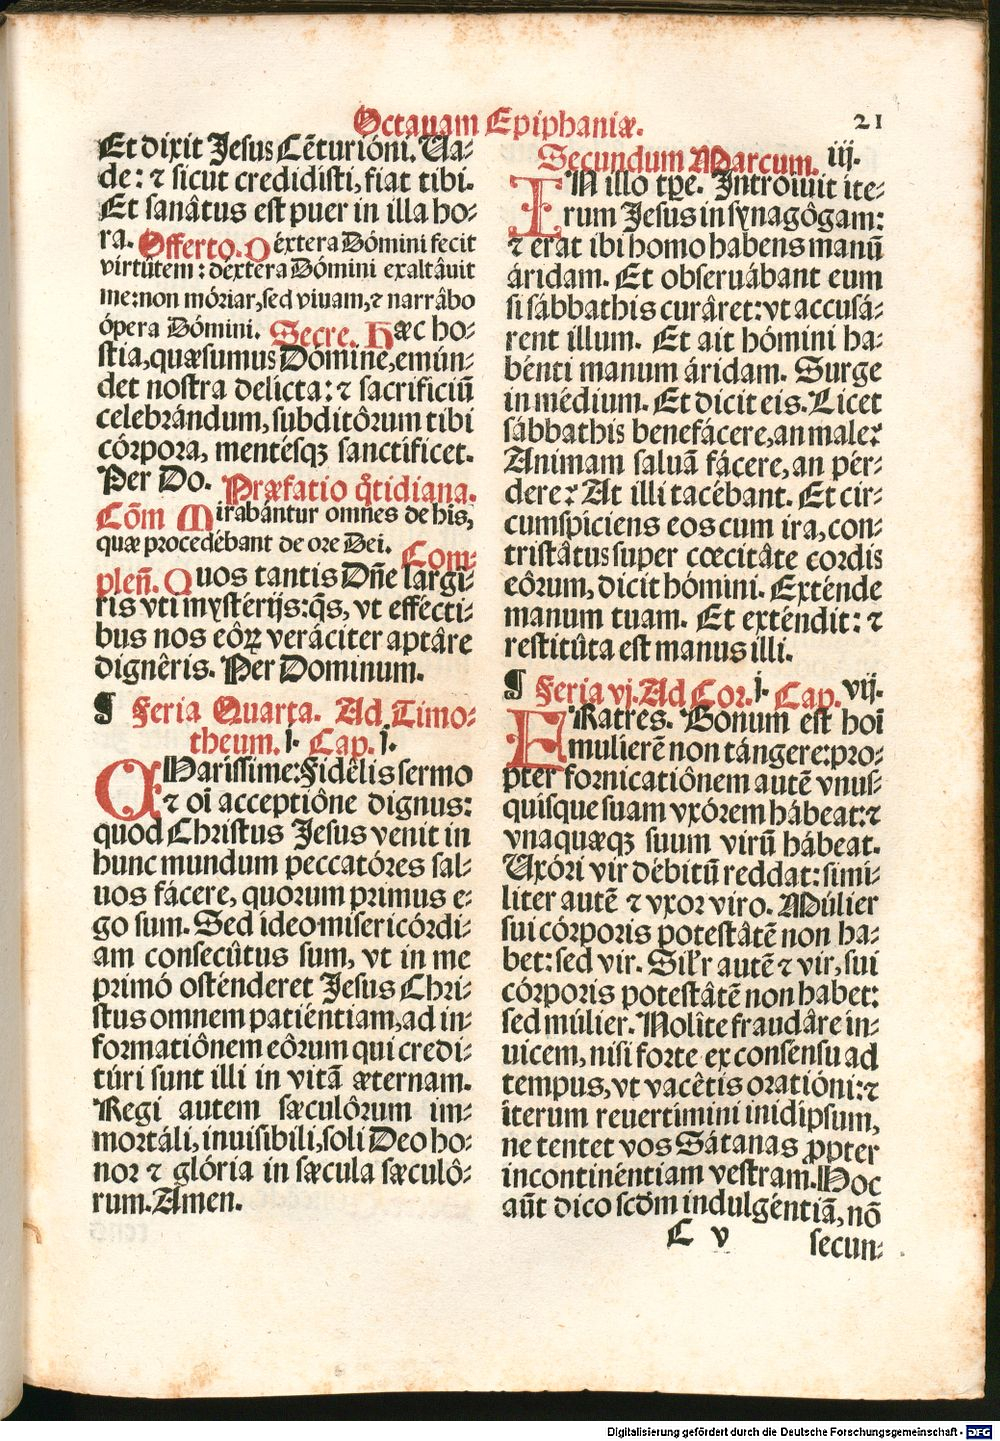 Octauam Epiphaniæ.
21
Et dixit Jesus Cẽturióni. Va⸗
de: ⁊ sicut credidisti, fiat tibi.
Et sanâtus est puer in illa ho⸗
ra. Offerto. Déxtera Dómini fecit
virtûtem: déxtera Dómini exaltâuit
me: non móriar, sed viuam, ⁊ narrâbo
ópera Dómini. Secre. Hæc ho⸗
stia, quæsumus Dómine, emún⸗
det nostra delicta: ⁊ sacrificiũ
celebrándum, subditôrum tibi
córpora, mentésqꝫ sanctificet.
Per Do. Præfatio q̃tidiana.
Cõm Mirabántur omnes de his,
quæ procedébant de ore Dei. Com⸗
pleñ. Quos tantis Dñe largi⸗
ris vti mystérijs: q̃s, vt effécti⸗
bus nos eôꝝ veráciter aptâre
dignêris. Per Dominum.
¶ Feria Quarta. Ad Timo⸗
theum. j. Cap. j.
CHaríssime: Fidêlis sermo
⁊ oĩ acceptiône dignus:
quod Christus Jesus venit in
hunc mundum peccatóres sal⸗
uos fácere, quorum primus e⸗
go sum. Sed ideo misericórdi⸗
am consecûtus sum, vt in me
primó osténderet Jesus Chri⸗
stus omnem patiéntiam, ad in⸗
formatiônem eôrum qui credi⸗
túri sunt illi in vitã æternam.
Regi autem sæculôrum im⸗
mortáli, inuisibili, soli Deo ho⸗
nor ⁊ glória in sæcula sæculô⸗
rum. Amen.
Secundum Marcum. iij.
IN illo tꝑe. Introiuit ite⸗
rum Jesus in synagôgam:
⁊ erat ibi homo habens manũ
áridam. Et obseruábant eum
si sábbathis curâret: vt accusá⸗
rent illum. Et ait hómini ha⸗
bénti manum áridam. Surge
in médium. Et dicit eis. Licet
sábbathis benefácere, an male?
Animam saluã fácere, an pér⸗
dere? At illi tacébant. Et cir⸗
cumspíciens eos cum ira, con⸗
tristâtus super cœcitâte cordis
eôrum, dicit hómini. Exténde
manum tuam. Et exténdit: ⁊
restitûta est manus illi.
¶ Feria vj. Ad Cor. j. Cap. vij.
FRatres. Bonum est hoĩ
mulierẽ non tángere: pro⸗
pter fornicatiônem autẽ vnus⸗
quísque suam vxórem hábeat: ⁊
vnaquæqꝫ suum virũ hábeat.
Vxóri vir débitũ reddat: simi⸗
liter autẽ ⁊ vxor viro. Múlier
sui córporis potestâtẽ non ha⸗
bet: sed vir. Sil'r autẽ ⁊ vir, sui
córporis potestâtẽ non habet:
sed múlier. Nolîte fraudâre in⸗
uicem, nisi forte ex consensu ad
tempus, vt vacêtis oratióni: ⁊
íterum reuertimini in idipsum,
ne tentet vos Sátanas ꝓpter
incontinéntiam vestram. Hoc
aũt dico scđm indulgéntiã, nõ
C v
secun⸗
Digitalisierung gefördert durch die Deutsche Forschungsgemeinschaft - DFG